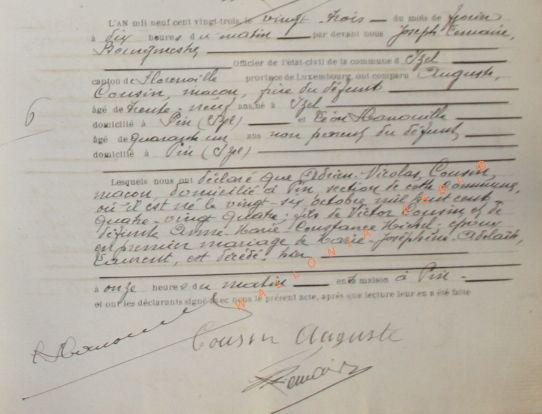 L'AN mil neuf cent vingt-trois, le vingt-trois du mois de février
à dix heures du matin par devant nous Joseph Lemaire,
Bourgmestre
Officier de l'état-civil de la commune d'Izel
canton de Florenville province de Luxembourg, ont comparu Auguste,
Cousin, maçon, frère du défunt
6
âgé de trente-neuf ans, né à Izel
domicilié à Pin (Izel) et Léon Hanouille
âgé de quarante un ans non parent du défunt,
domicilié à Pin (Izel)
Lesquels nous ont déclaré que Adrien-Nicolas, Cousin,
maçon, domicilié à Pin, section de cette commune,
où il est né le vingt-six octobre mil huit cent
quatre-vingt quatre, fils de Victor Cousin et de
défunte Anne-Marie-Constance, époux
en premier mariage de Marie-Joséphine-Adelaïde,
Laurent, est décédé hier
à onze heures du matin en sa maison à Pin
et ont les déclarants signé avec nous le présent acte, après que lecture leur en a été faite
Cousin Auguste
Lemaire